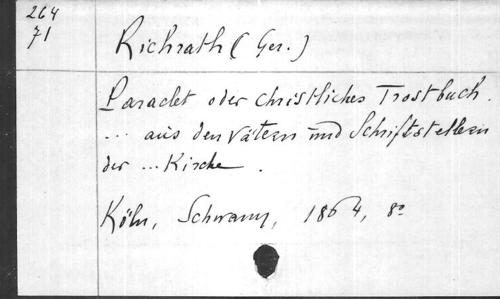 264
71
Richrath (Ger.)
Paraclet oder christliches Trostbuch.
... aus den Vätern und Schriftstellern
der ... Kirche.
Köln, Schwann, 1864, 8°